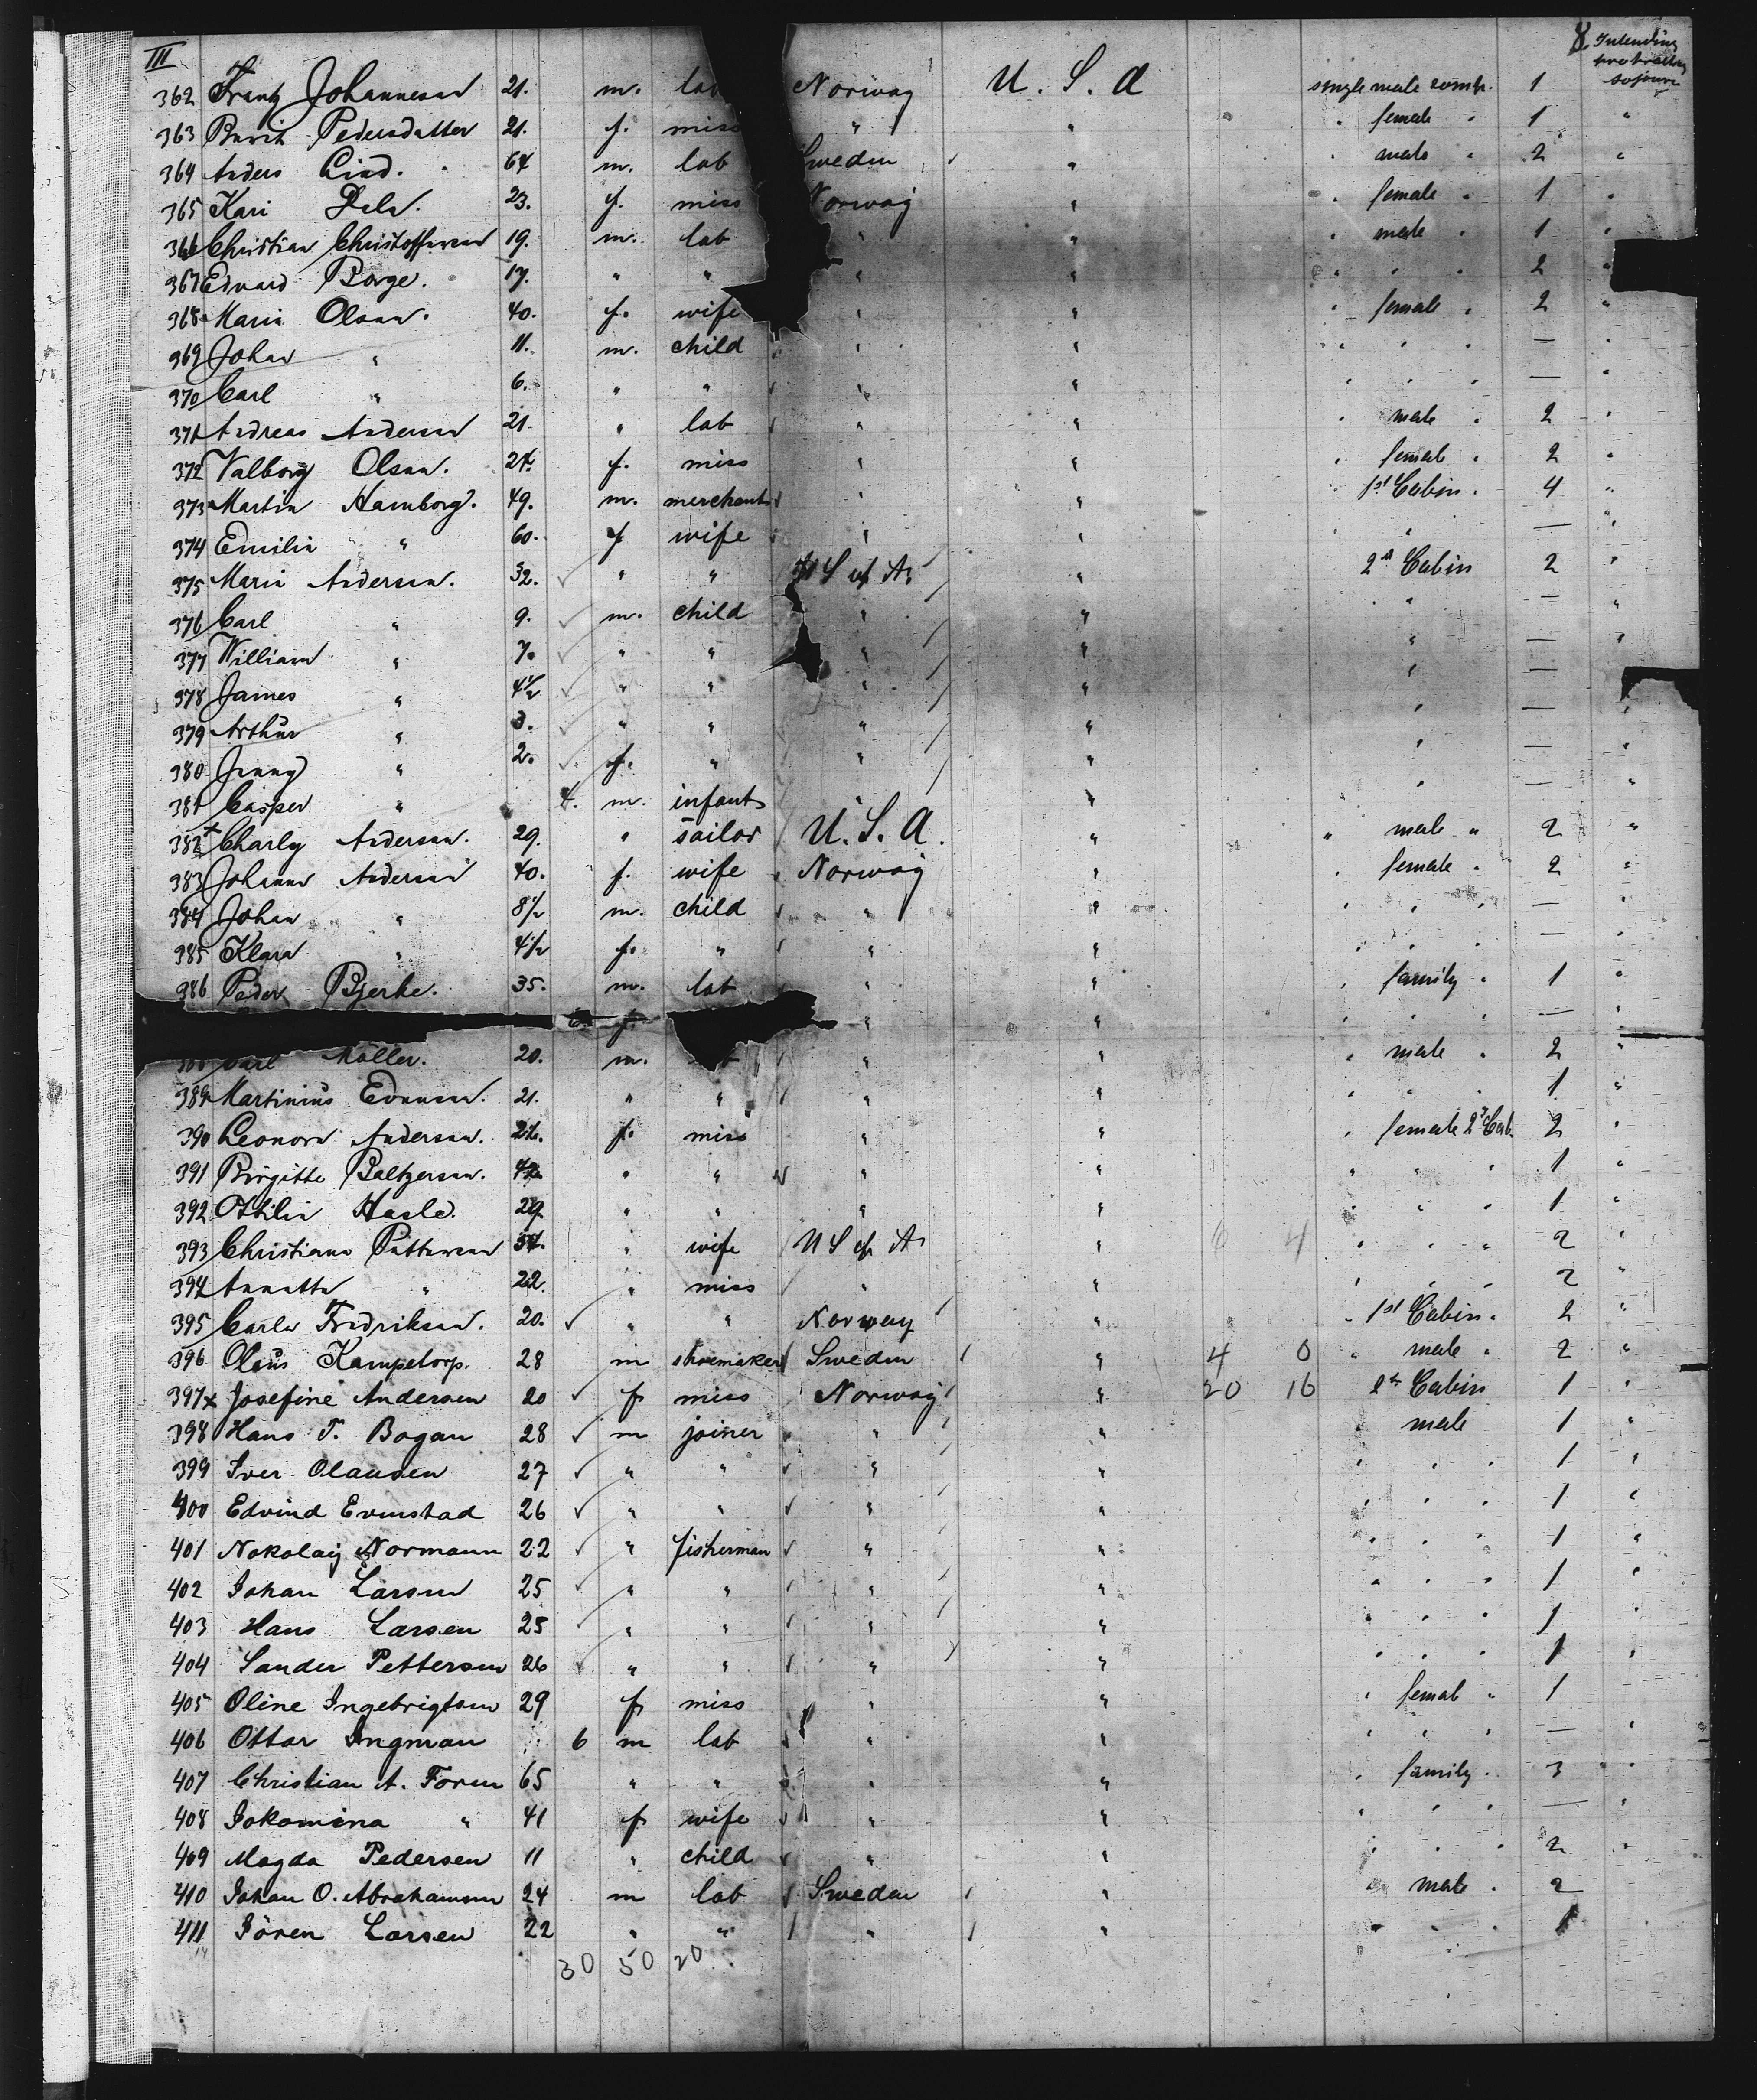 III 8. Intending protracted sojourn
362 Frantz Johannesen 21. m. lab Norway U. S. A single male comp. 1
363 Pedersdatter 21. f. miss " " " female " 1 "
364 Anders Lind. 64 m. lab Sweden " " male " 2 "
365 Kari 23. f. miss Norway " " female " 1 "
366 Christian Christoffersen 19. m. lab " " " male " 1 "
367 Edvard Borge. 17. " " " " " " " 2 "
368 Maria Olsen. 40. f. wife " " " female " 2 "
369 Johan " 11. m. child " " " " " — "
370 Carl " 6. " " " " " " " — "
371 Andreas Andersen 21. " lab " " " male " 2 "
372 Valborg Olsen. f. miss " " " female " 2 "
373 Martin Hamborg. 49. m. merchant " " " 1st Cabin " 4 "
374 Emilie " 60. f wife " " " " — "
375 Maria Andersen. 32. " " U S of A " 2d Cabin 2 "
376 Carl " 9. m. child " " " — "
377 William " 7. " " " " " — "
378 James " 4½ " " " " " —
379 Arthur " 3. " " " " " — "
380 Jenny " 2. f. " " " " — "
381 Casper " 4. m. infant " " " — "
382 x Charly Andersen. 29. " sailor U. S. A. " " male " 2 "
383 Johanne Andersen 40. f. wife Norway " " female " 2 "
384 Johan " 8½ m. child " " " " " — "
385 Klara " 4½ f. " " " " " " — "
386 Peder Bjerke. 35. m. lab " " " family " 1 "
f. " " " " " — "
Carl Möller. 20. m. " " " male " 2 "
389 Martinius 21. " " " " " " " 1 "
390 Leonora Andersen. f. miss " " " female 2d Cab. 2 "
391 Birgitte Baltzersen. " " " " " " " 1 "
392 Othilie Hasle. 29. " " " " " " " 1 "
393 Christiane Pettersen 54. " wife U S of A " 6 4 " " " 2 "
394 Annette " 22. " miss " " " " " 2 "
395 Carla Fredriksen. 20. " " Norway " " 1st Cabin " 2 "
396 Olaus Kampetorp. 28 m shoemaker Sweden " 4 0 " male " 2 "
397 x Josefine Andersen 20 f miss Norway " 20 16 2d Cabin 1 "
398 Hans T. Bogan 28 m joiner " " " male 1 "
399 Iver Olausen 27 " " " " " " " 1 "
400 Edvind Evenstad 26 " " " " " " " 1 "
401 Nokolay Normann 22 " fisherman " " " " " 1 "
402 Johan Larsen 25 " " " " " " " 1 "
403 Hans Larsen 25 " " " " " " " 1 "
404 Sander Pettersen 26 " " " " " " " 1 "
405 Oline Ingebrigtsen 29 f miss " " " femal " 1
406 Ottar Ingman 6 m lab " " " " " — "
407 Christian A. Foren 65 " " " " " family " 3 "
408 Jokomina " 41 f wife " " " " " — "
409 Magda Pedersen 11 " child " " " " " 2 "
410 Johan O. Abrahamsen 24 m lab Sweden " " male " 2
411 Sören Larsen 22 " " " " " " " 1
30 50 20